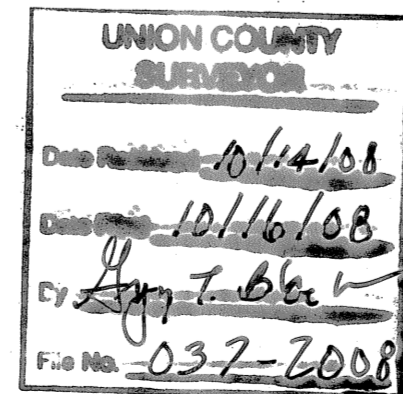 UNION COUNTY
SURVEYOR
Date Received 10/14/08
Date Filed 10/16/08
By
File No. 037-2008